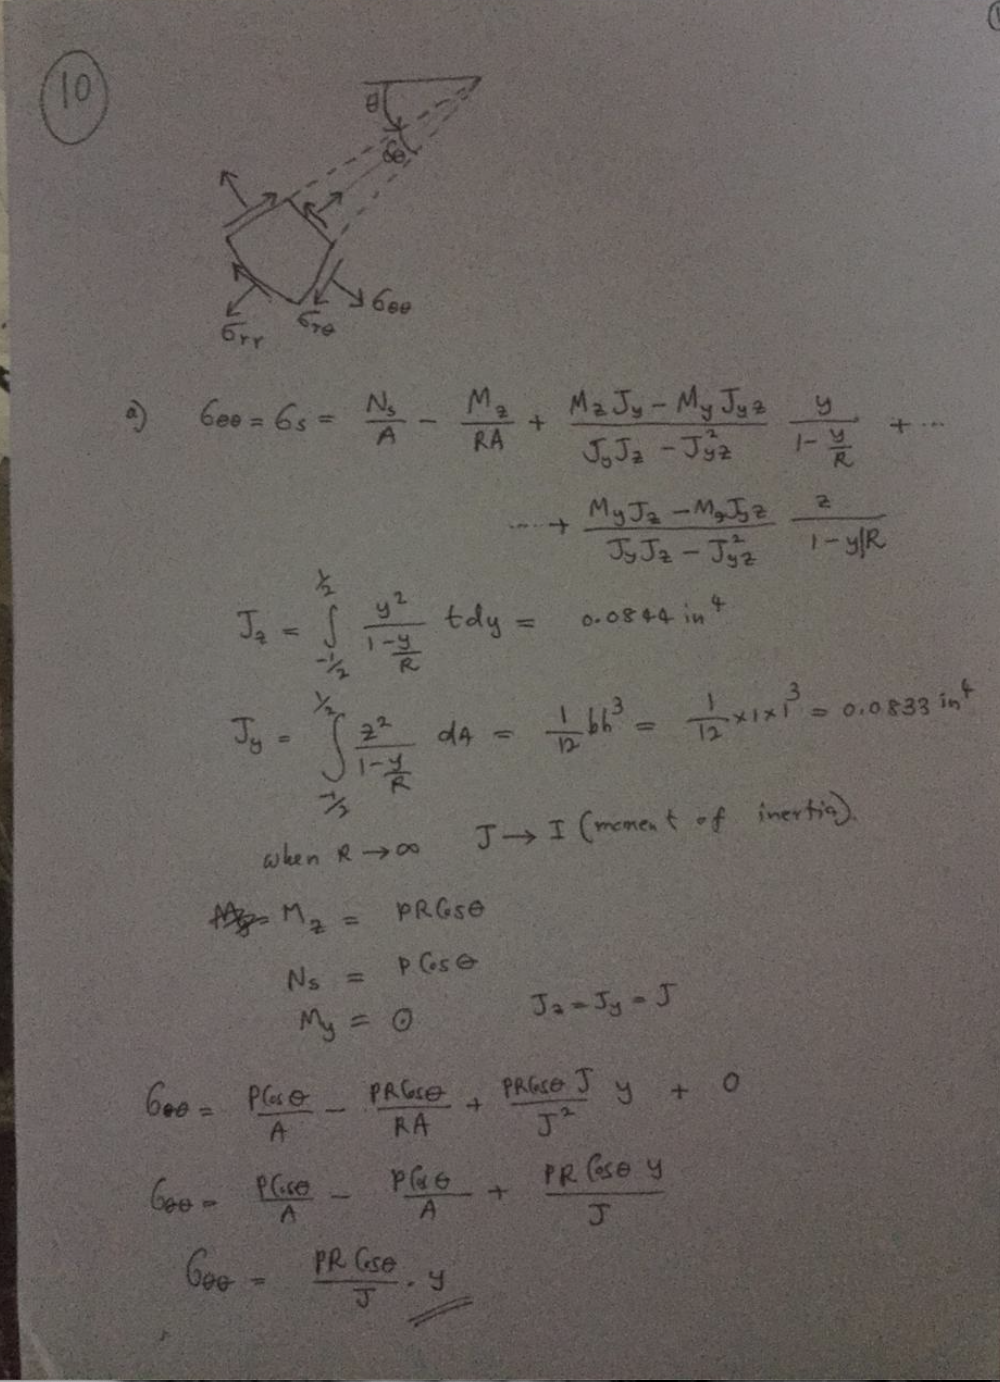 10
θ
δθ
σθθ
σrr
σrθ
a) σθθ = σs = Ns/A - Mz/RA + (MzJy - MyJyz)/(JyJz - Jyz²) y/(1 - y/R) + ...
....+ (MyJz - MzJyz)/(JyJz - Jyz²) z/(1 - y/R)
Jz = ∫_{-1/2}^{1/2} y²/(1 - y/R) tdy = 0.0844 in⁴
Jy = ∫_{-1/2}^{1/2} z²/(1 - y/R) dA = 1/12 bh³ = 1/12 ×1×1³ = 0.0833 in⁴
when R → ∞ J → I (moment of inertia).
Mz = PRCosθ
Ns = PCosθ
My = 0 Jz = Jy = J
σθθ = PCosθ/A - PRCosθ/RA + PRCosθ J/J² y + 0
σθθ = PCosθ/A - PCosθ/A + PR Cosθ y/J
σθθ = PR Cosθ/J . y